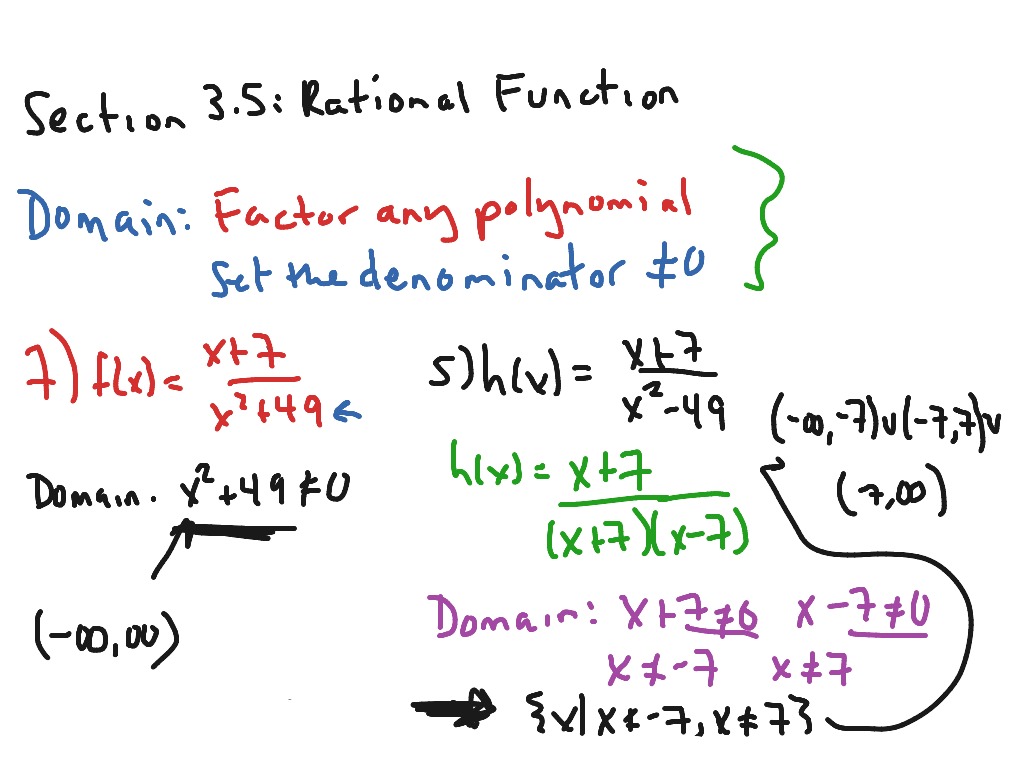 Section 3.5: Rational Function
Domain: Factor any polynomial
Set the denominator ≠0
7) f(x) = (x+7)/(x²+49) ←
Domain. x²+49≠0
(-∞,∞)
5) h(x) = (x+7)/(x²-49)
h(x) = (x+7)/((x+7)(x-7))
Domain: x+7≠0 x-7≠0
x≠-7 x≠7
{x|x≠-7, x≠7}
(-∞,-7)∪(-7,7)∪
(7,∞)